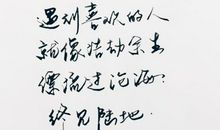 遇到喜欢的人
就像拮劫余生
漂流过沧海
终见陆地.